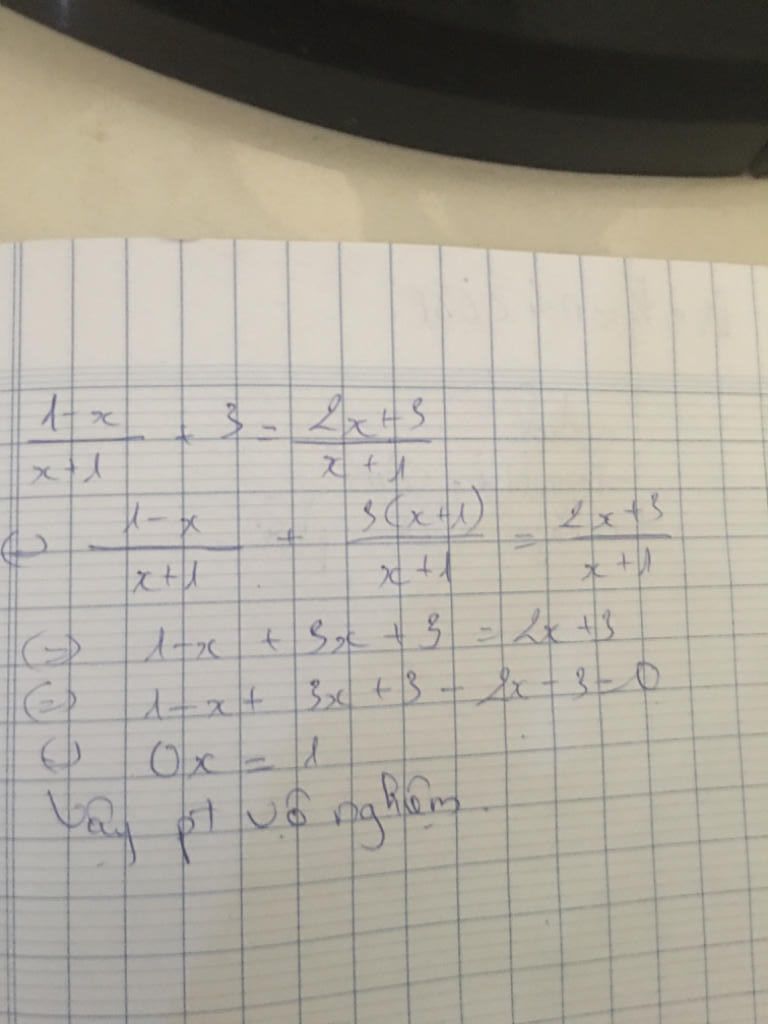 1-x/x+1 + 3 = 2x+3/x+1
(=) 1-x/x+1 + 3(x+1)/x+1 = 2x+3/x+1
(=) 1-x + 3x + 3 = 2x+3
(=) 1-x+ 3x + 3 - 2x - 3 = 0
(=) 0x = 1
Vậy pt vô nghiệm.